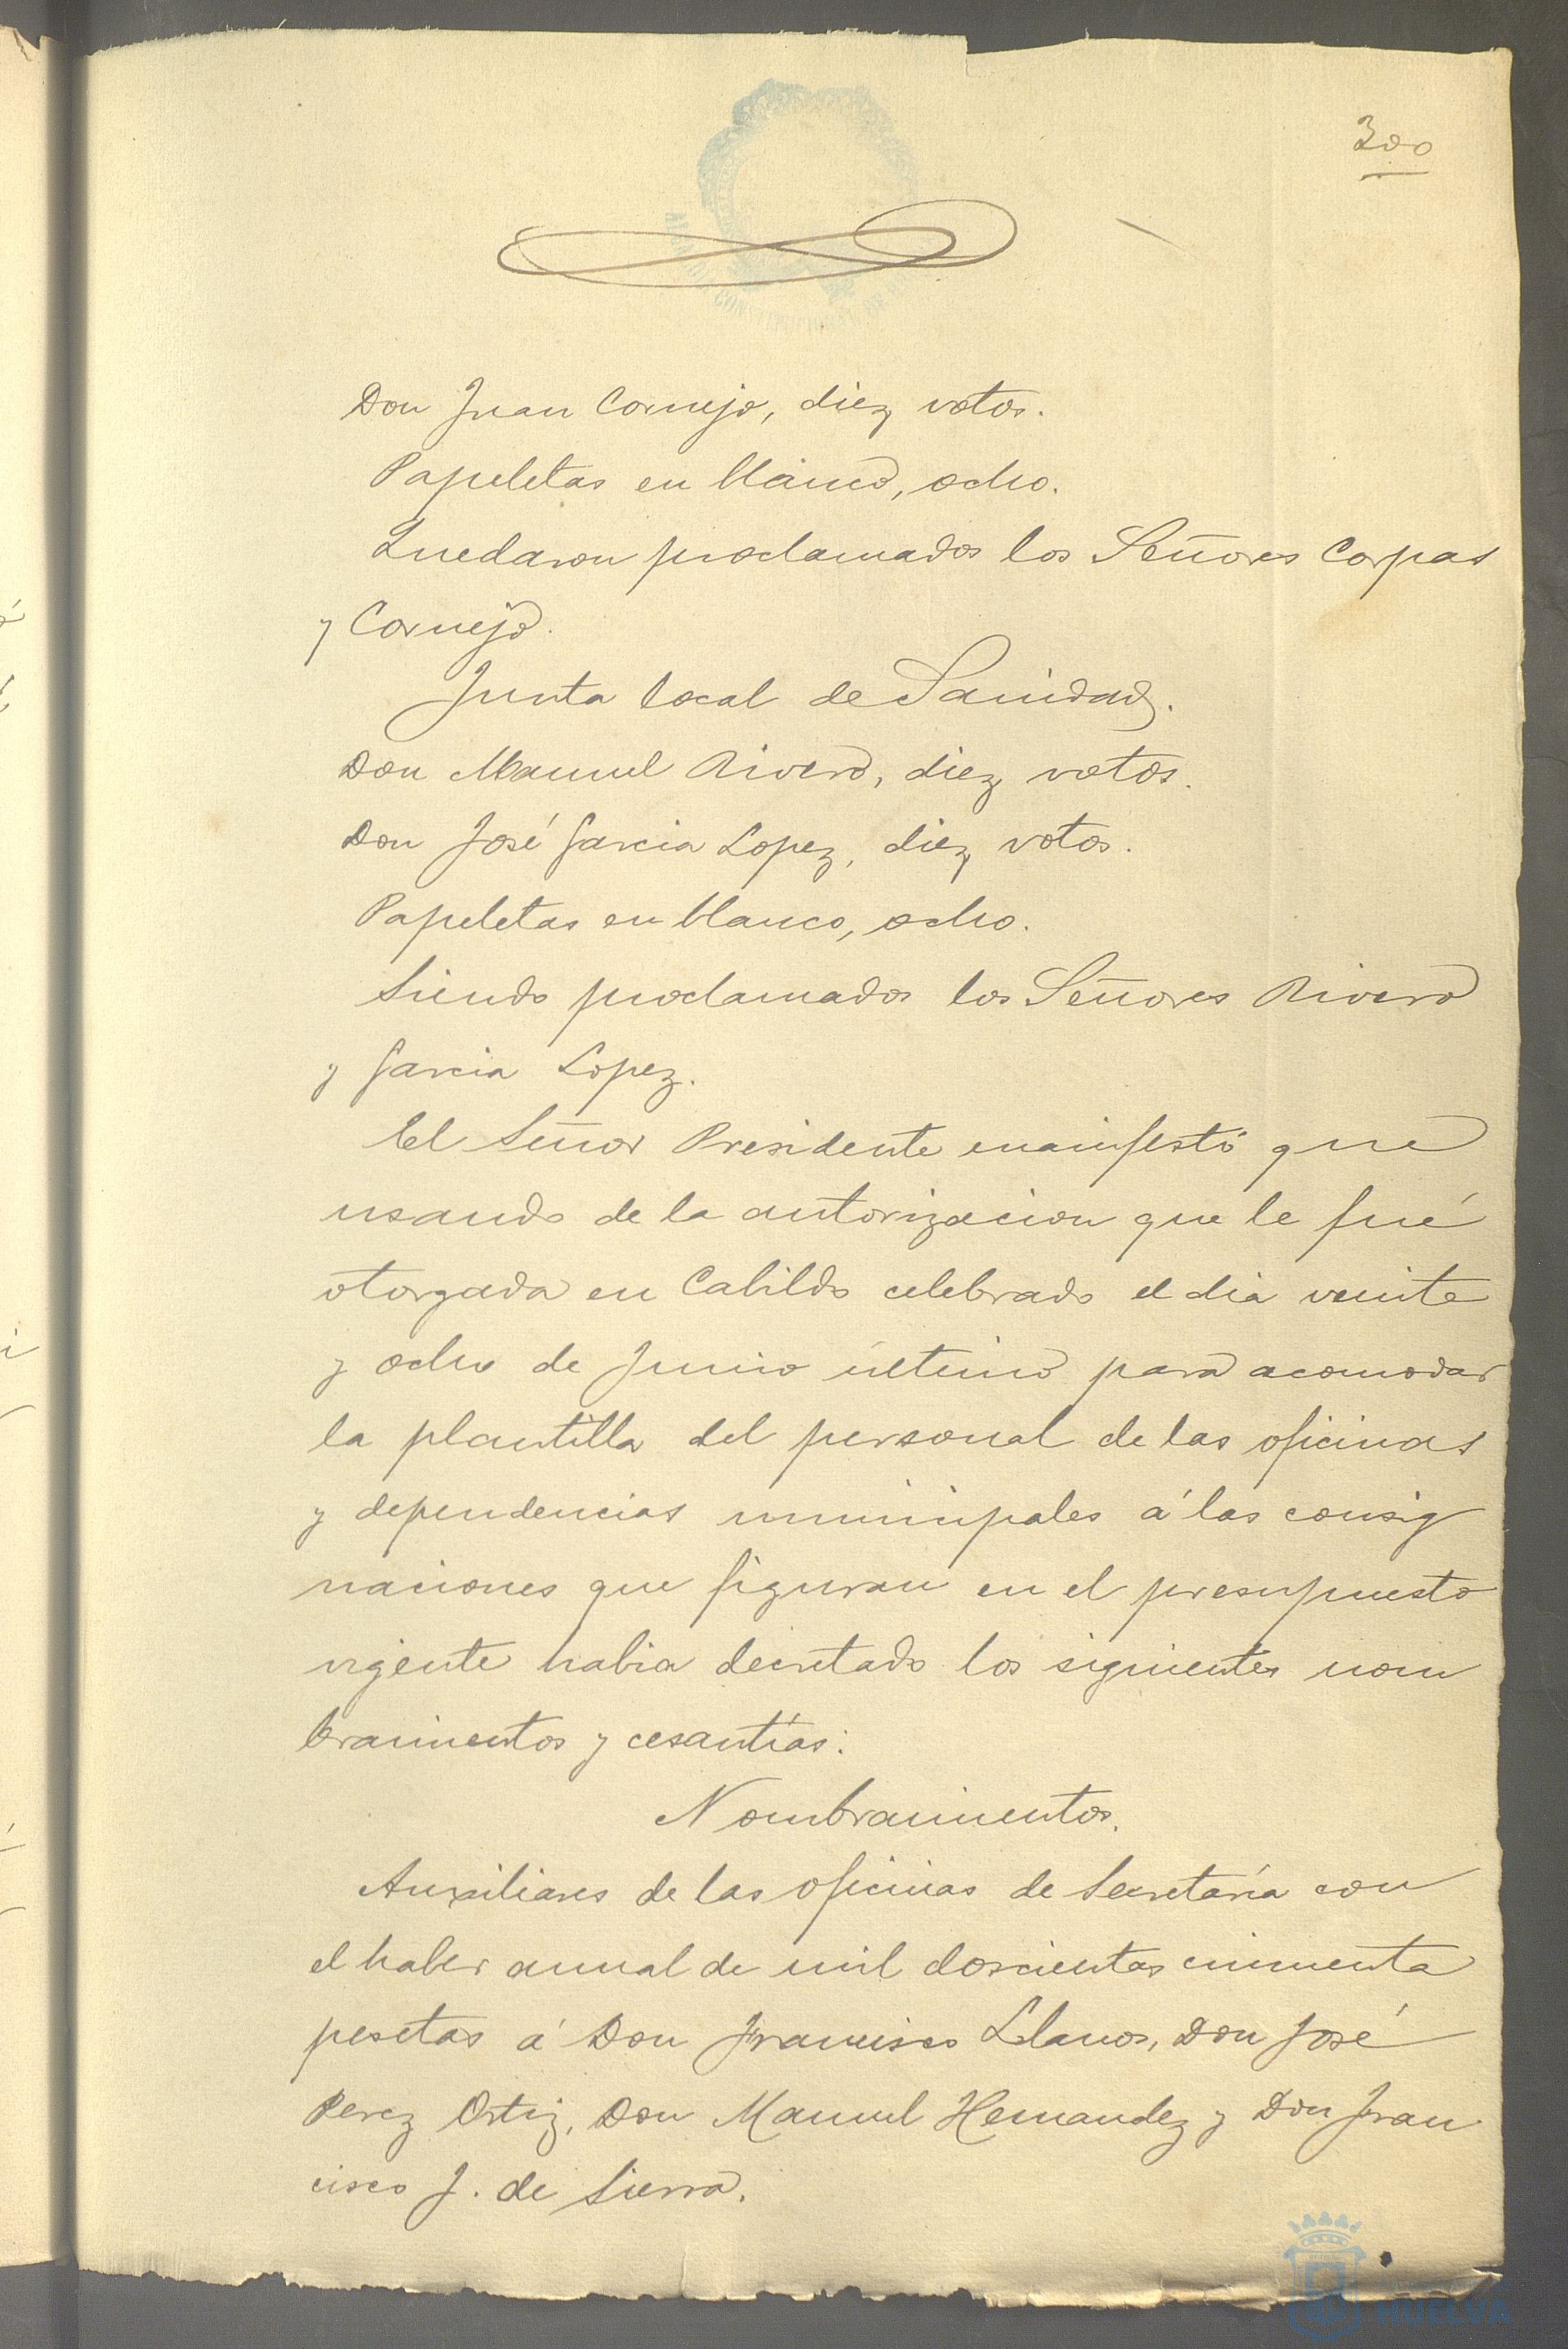 300
Don Juan Cornejo, diez votos.
Papeletas en blanco, ocho.
Quedaron proclamados los Señores Corpas
y Cornejo.
Junta local de Sanidad.
Don Manuel Rivero, diez votos.
Don José Garcia Lopez, diez votos.
Papeletas en blanco, ocho.
Siendo proclamados los Señores Rivero
y Garcia Lopez.
El Señor Presidente manifestó que
usando de la autorizacion que le fué
otorgada en Cabildo celebrado el dia veinte
y ocho de Junio último para acomodar
la plantilla del personal de las oficinas
y dependencias municipales á las consig
naciones que figuran en el presupuesto
vigente habia decretado los siguientes nom
bramientos y cesantías:
Nombramientos.
Auxiliares de las oficinas de Secretaría con
el haber anual de mil doscientas cincuenta
pesetas á Don Francisco Llanos, Don José
Perez Ortiz, Don Manuel Hernandez y Don Fran
cisco J. de Sierra.
HUELVA